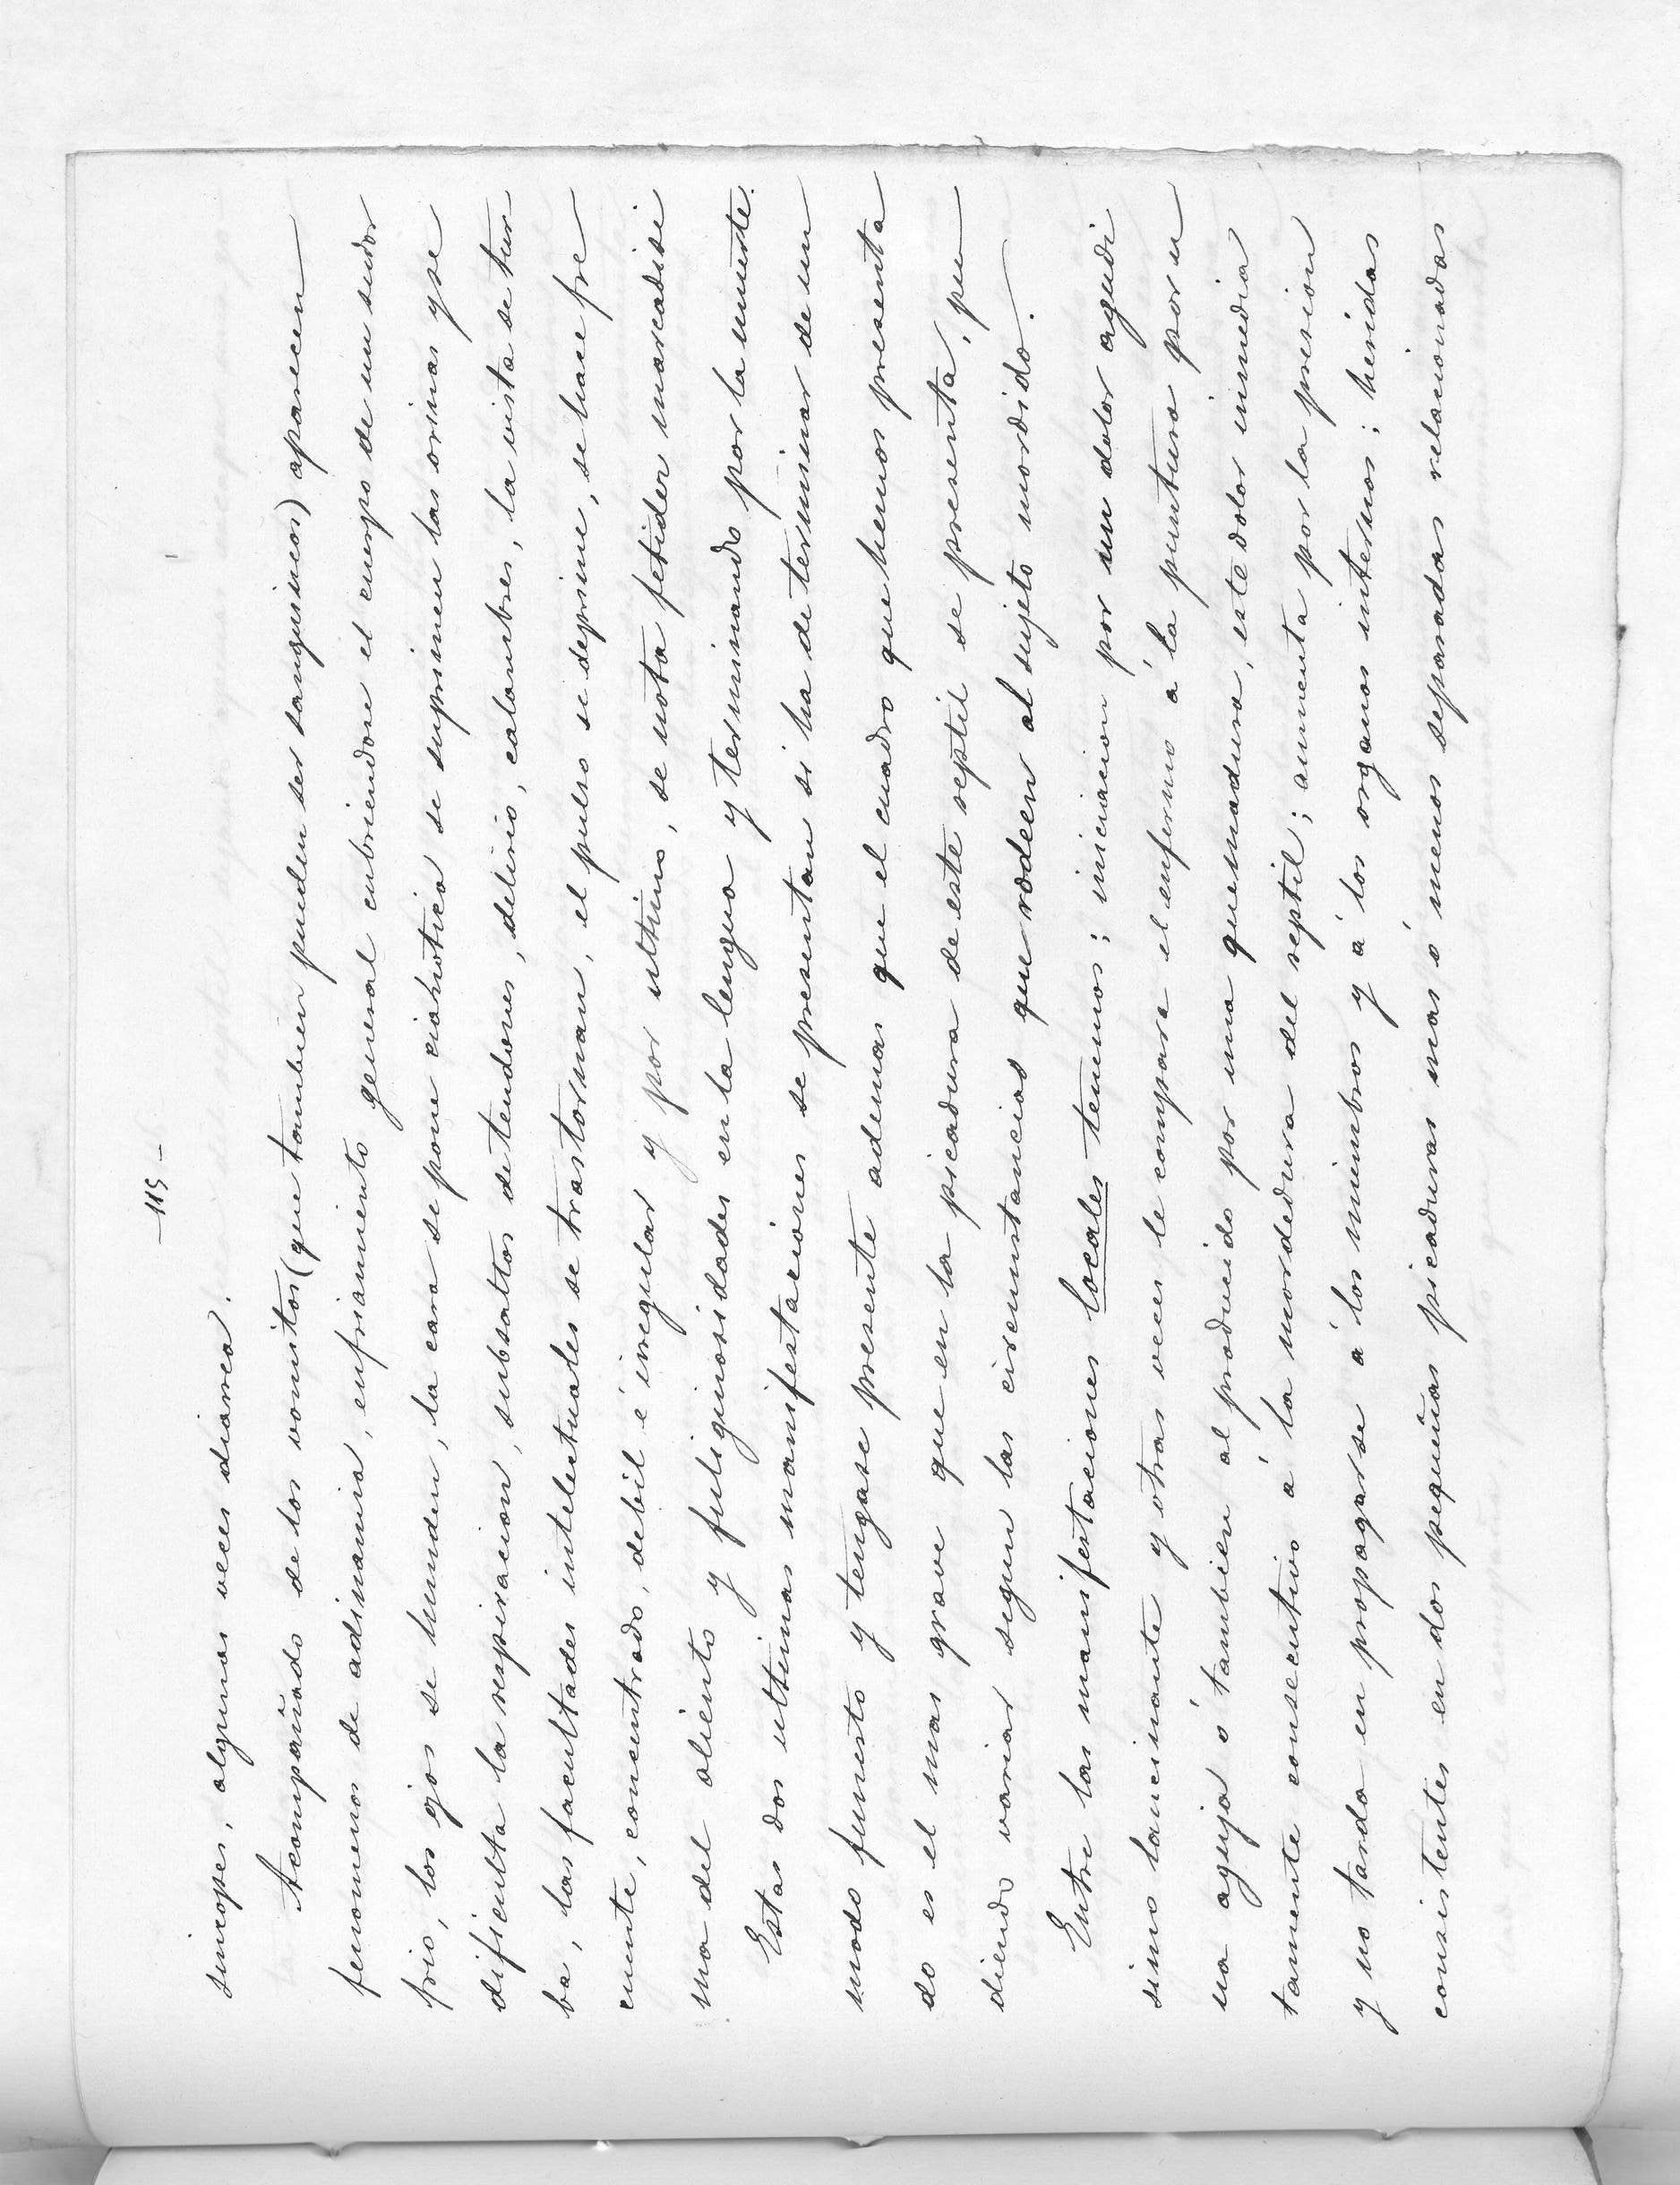 -115-
sincopes, algunas veces diarrea.
Acompañado de los vomitos (que tambien pueden ser sanguineos) aparecen
fenomenos de adinamia, enfriamiento general cubriendose el cuerpo de un sudor
frio, los ojos se hunden, la cara se pone cianotica se suprimen las orinas y se
dificulta la respiracion, subsaltos de tendones, delirio, calambres, la vista se tur
ba, las facultades intelectuales se trastornan, el pulso se deprime, se hace fre
cuente, concentrado, debil é irregular y por ultimo, se nota fetidez marcadisi
ma del aliento y fuliginosidades en la lengua y terminando por la muerte.
Estas dos ultimas manifestaciones se presentan si ha de terminar de un
modo funesto y tengase presente ademas que el cuadro que hemos presenta
do es el mas grave que en la picadura de este reptil se presenta, pu
diendo variar segun las circunstancias que rodeen al sujeto mordido.
Entre las manifestaciones locales tenemos; iniciacion por un dolor agudi
simo lancinante y otras veces le compara el enfermo á la puntura por u
na aguja ó tambien al producido por una quemadura, este dolor inmedia
tamente consecutivo á la mordedura del reptil; aumenta por la presion
y no tarda en propagarse á los miembros y á los organos internos; heridas
consistentes en dos pequeñas picaduras mas ó menos separadas relacionadas